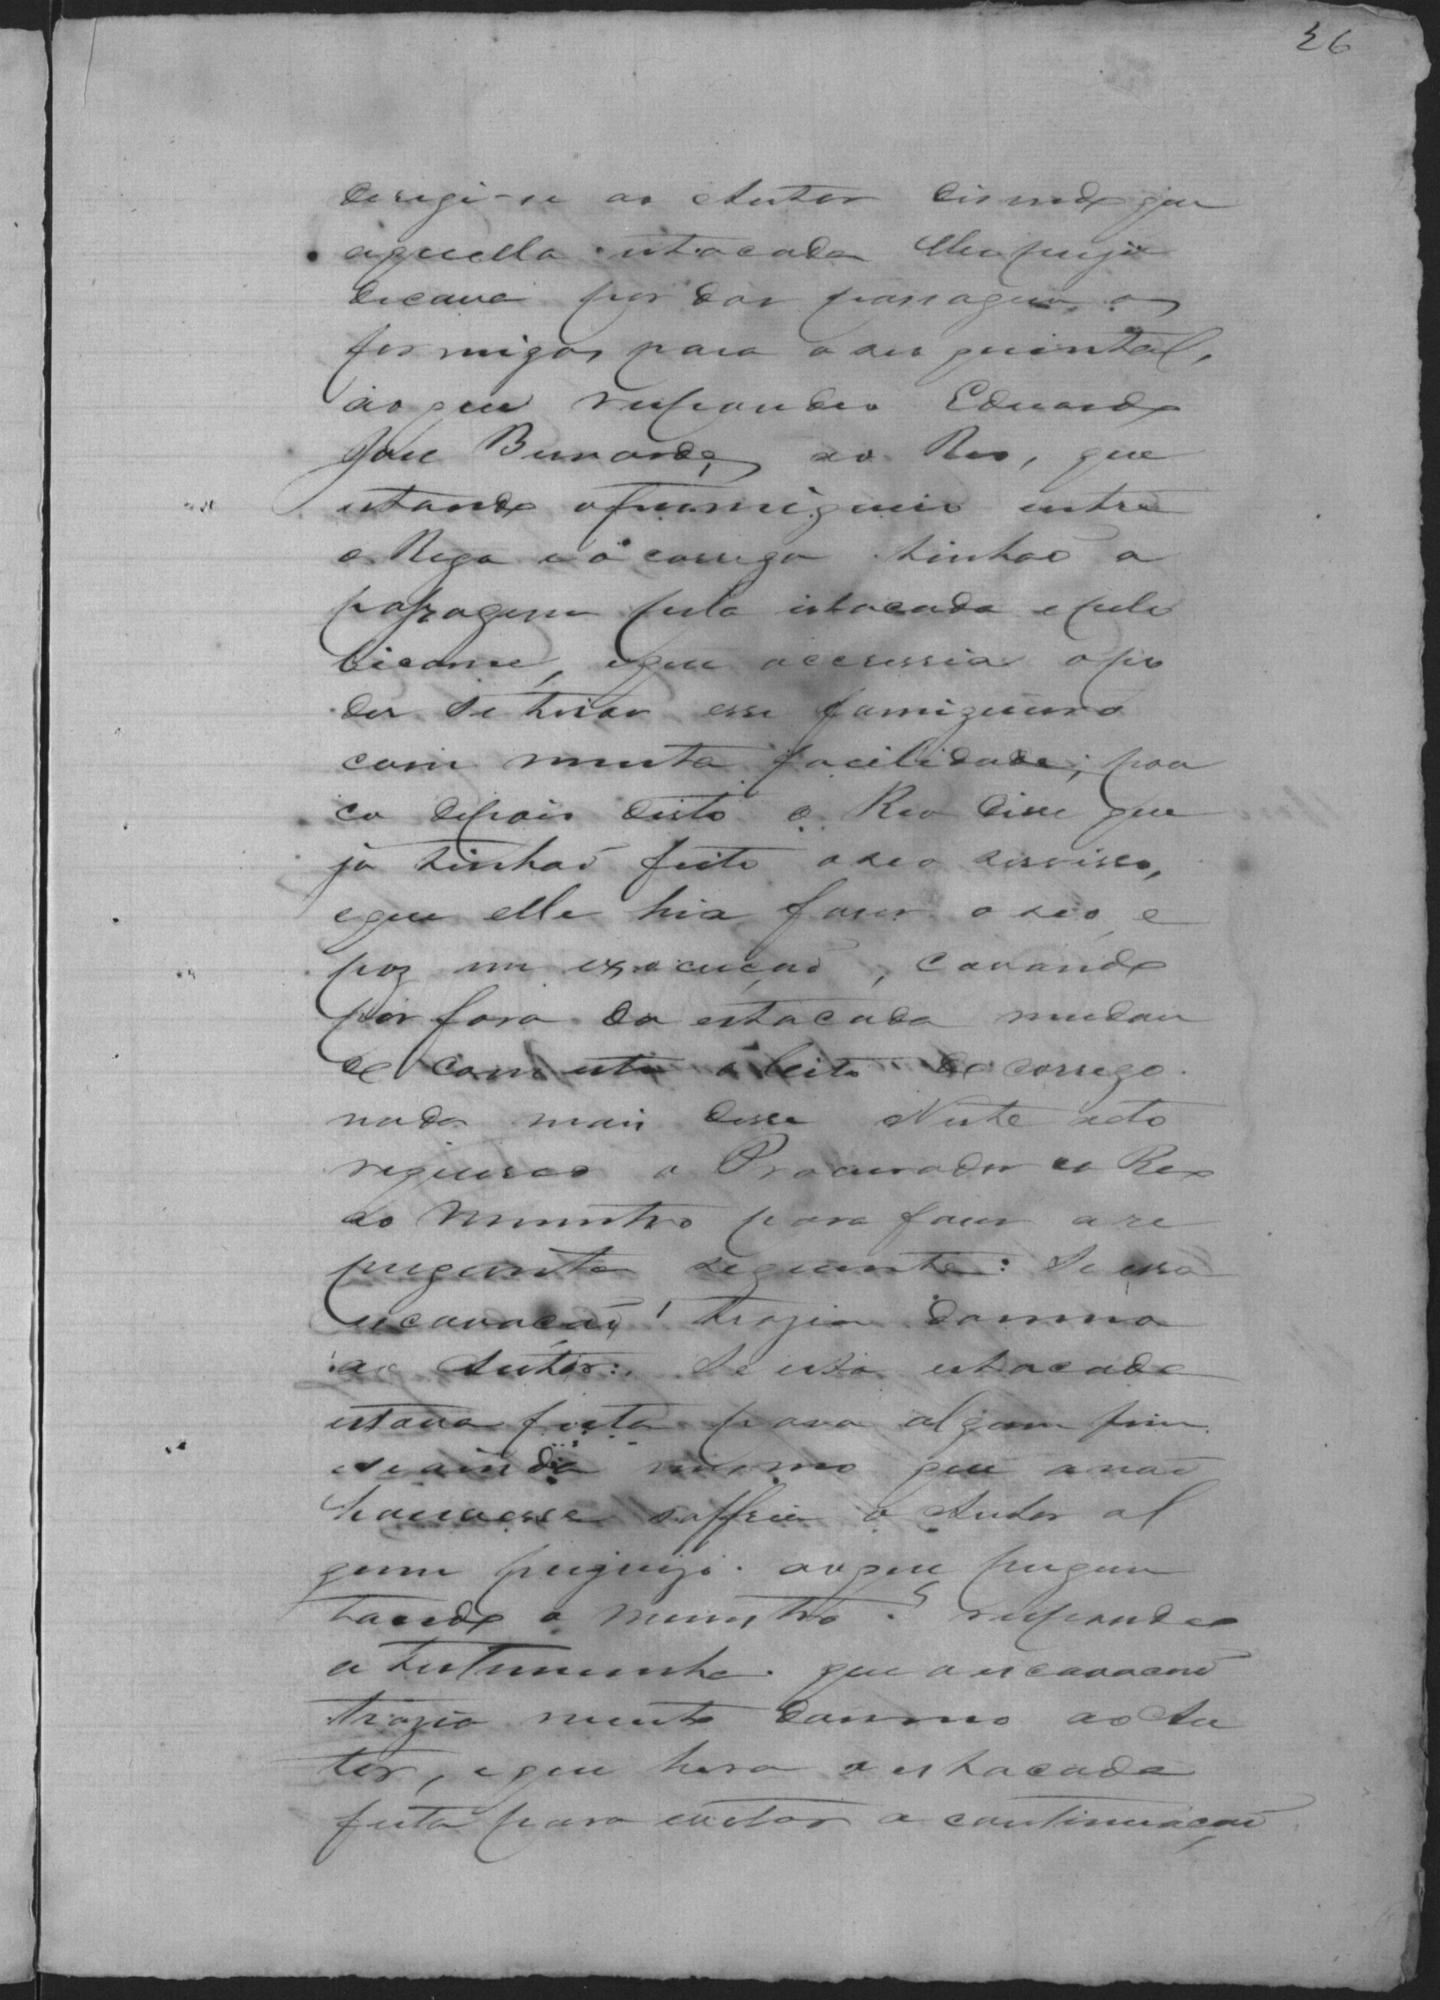 26
deregi-se ao Autor disendo que
aquella estacada lhe preju
dicava por dar passagem as
formigas para o seu quintal,
ao que respondeo Eduardo
José Bernardes ao Reo, que
estando o formigueiro entre
o Rego e o corrego tinhão a
passagem pela estacada e pelo
bicame, e que accressia o po
der se tirar esse formigueiro
com muita facilidade; pou
co depois disto o Reo disse que
já tinhão feito o seo servisso,
e que elle hia faser o seo, e
poz em exacução, cavando
por fora da estacada mudan
do com isto o leito do corrego.
nada mais disse Neste acto
requereo o Procurador do Reo
ao Menistro para faser a re
pregunta seguinte: Se essa
escavacão trazia damno
ao Autor: Se esta estacada
estava feita para algum fim
e se ainda mesmo que a não
houvesse soffria o Autor al
gum prejuizo. ao que pregun
tando o Menistro respondeo
a testemunha que a escavacão
trazia muito damno ao Au
tor, e que hera a estacada
feita para evitar a continuação